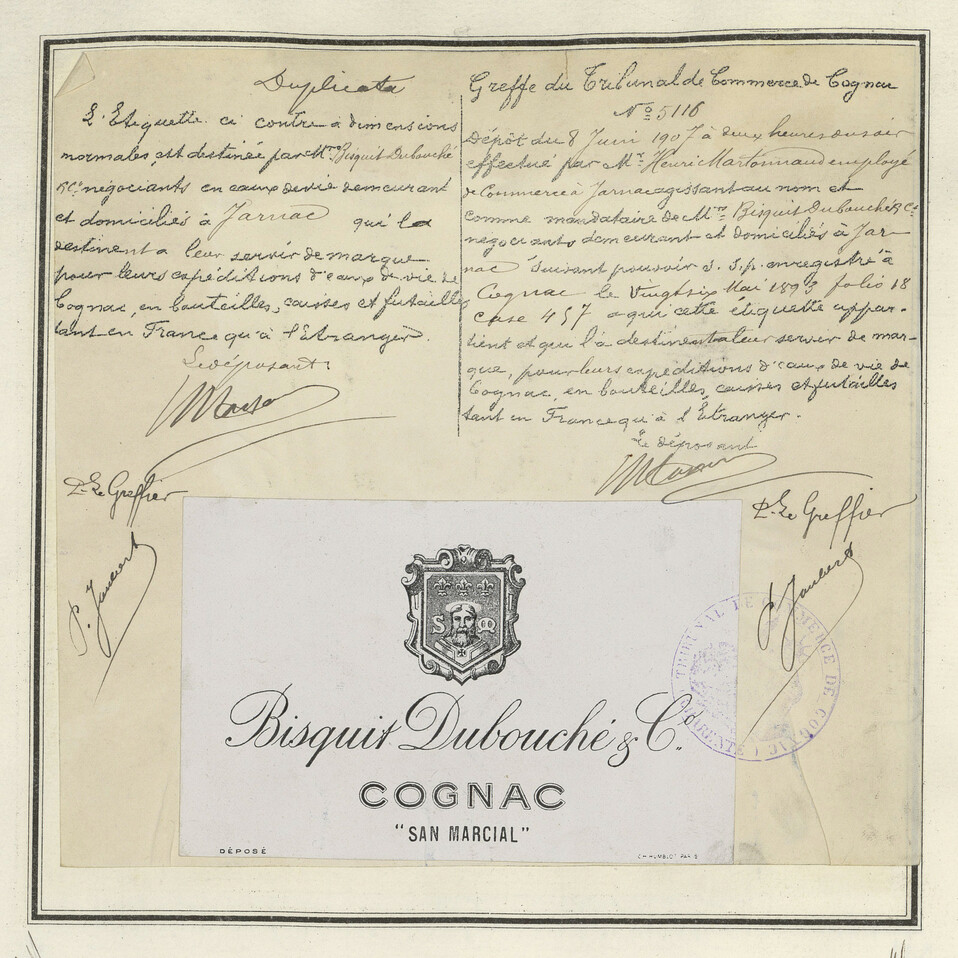 Duplicata
L'Etiquette ci contre à dimensions
normales est destinée par Mrs Bisquit Dubouché
& Cie négociants en eaux de vie demeurant
et domiciliés à Jarnac qui la
destinent à leur servir de marque
pour leurs expéditions d'eaux de vie de
Cognac, en bouteilles, caisses et futailles
tant en France qu'à l'Etranger.
Le déposant
P. Le Greffier
Greffe du Tribunal de Commerce de Cognac
No 5116
Dépôt du 8 Juin 1907 à deux heures du soir
effectué par Mr Henri Martonnaud employé
de Commerce à Jarnac agissant au nom et
comme mandataire de Mrs Bisquit Dubouché & Cie
négociants demeurant et domiciliés à Jar-
nac suivant pouvoir s. s. p. enregistré à
Cognac le Vingt six Mai 1893 folio 18
case 457 à qui cette étiquette appar-
tient et qui l'a destinent à leur servir de mar-
que, pour leurs expéditions d'eaux de vie de
Cognac, en bouteilles, caisses et futailles
tant en France qu'à l'Etranger.
Le déposant
P. Le Greffier
S M
Bisquit Dubouché & Co.
COGNAC
"SAN MARCIAL"
DÉPOSÉ
TRIBUNAL DE COMMERCE DE COGNAC (CHARENTE)